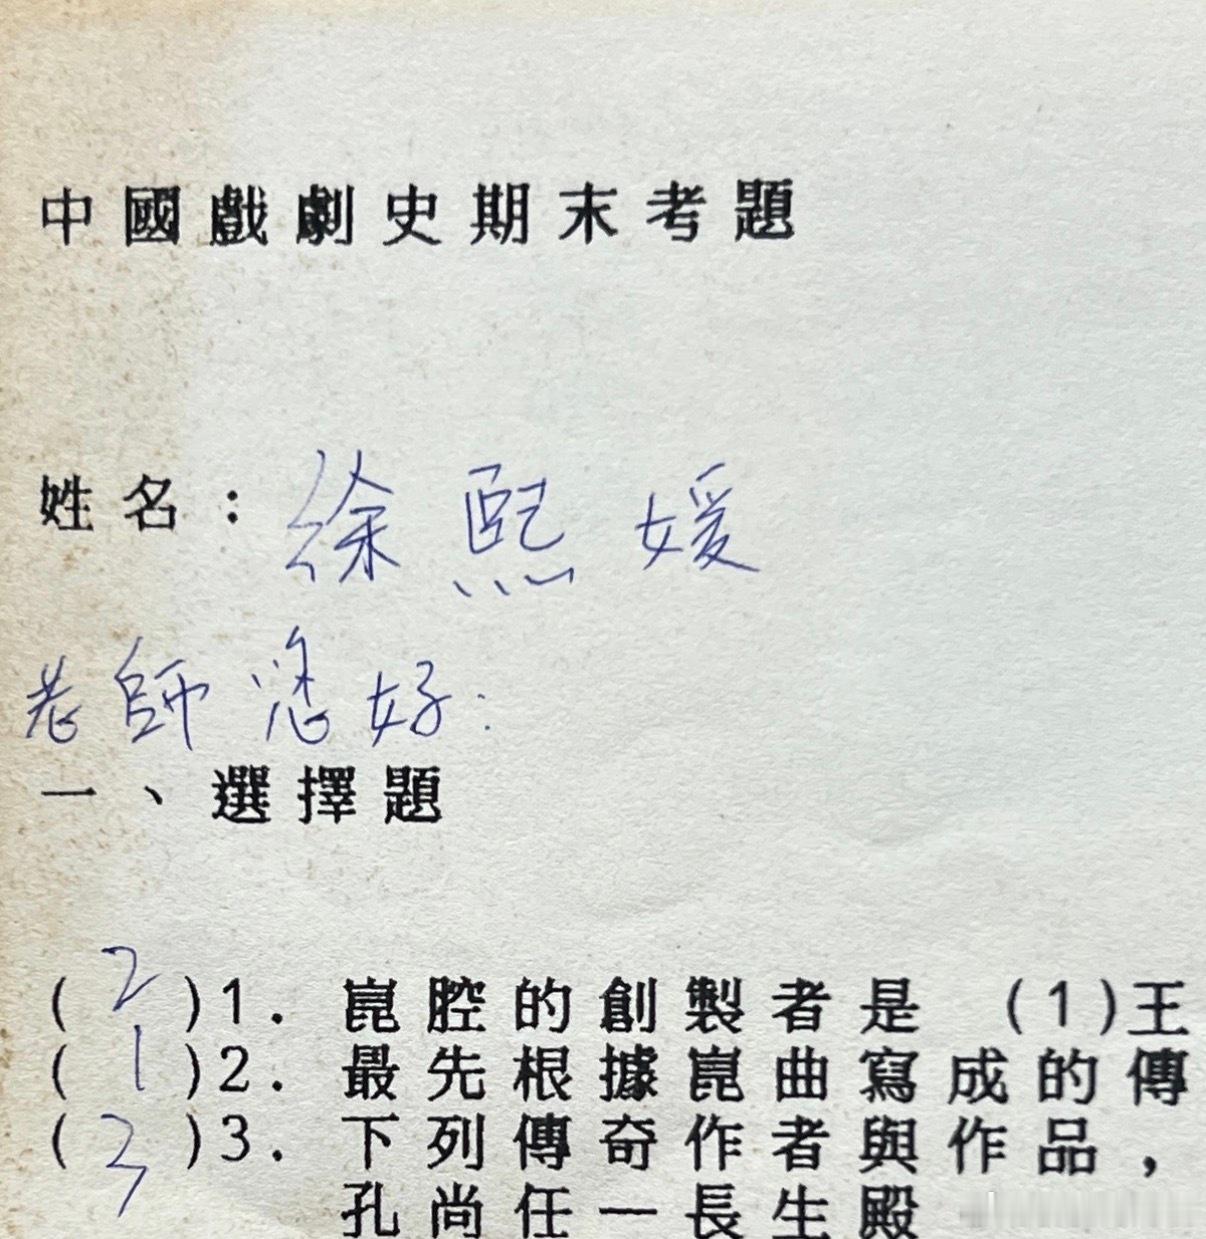 中國戲劇史期末考題
姓名：徐熙媛
老師您好：
一、選擇題
(2)1. 崑腔的創製者是 (1)王
(1)2. 最先根據崑曲寫成的傳
(3)3. 下列傳奇作者與作品，
孔尚任一長生殿